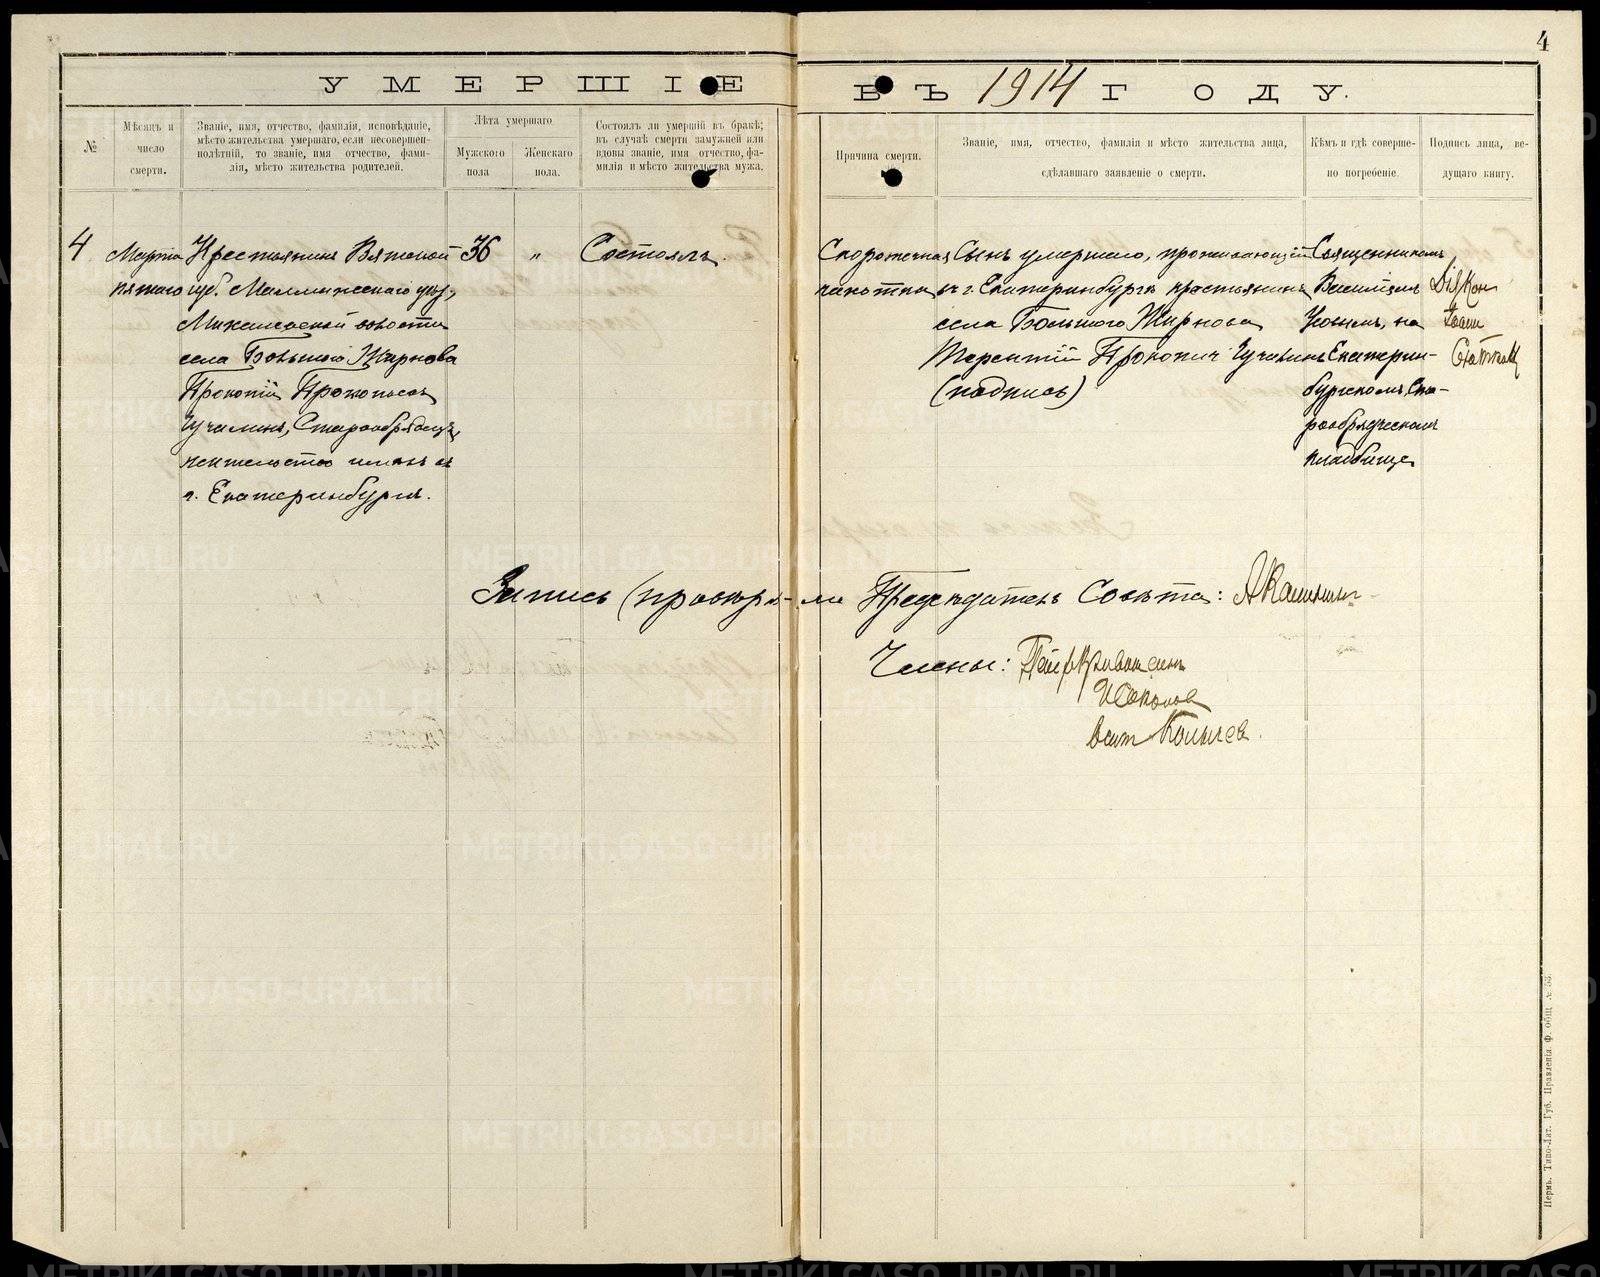 4
УМЕРШІЕ ВЪ 1914 ГОДУ.
№
Мѣсяцъ и
число
смерти.
Званіе, имя, отчество, фамилія, исповѣданіе,
мѣсто жительства умершаго, если несовершен-
нолѣтній, то званіе, имя отчество, фами-
лія, мѣсто жительства родителей.
Лѣта умершаго
Мужского
пола
Женскаго
пола.
Состоялъ ли умершій въ бракѣ;
въ случаѣ смерти замужней или
вдовы званіе, имя отчество, фа-
милія и мѣсто жительства мужа.
Причина смерти.
Званіе, имя, отчество, фамилія и мѣсто жительства лица,
сдѣлавшаго заявленіе о смерти.
Кѣмъ и гдѣ соверше-
но погребеніе.
Подпись лица, ве-
дущаго книгу.
4
Марта
пятаго
Крестьянинъ Вятской
губ. Малмыжскаго уѣз.,
волости
села Большого Жирнова
Прокопій Прокопьевъ
Старообрядецъ,
жительство имѣлъ въ
г. Екатеринбургѣ.
36
"
Состоялъ.
Скоротечная
чахотка
Сынъ умершаго, проживающій
въ г. Екатеринбургѣ крестьянинъ
села Большого Жирнова
Терентій Прокопіч
(подпись)
Священникомъ
Василіемъ
на
Екатерин-
бургскомъ Ста-
рообрядческомъ
кладбище
Діякон
Іоанн
Запись провѣряли Предсѣдатель Совѣта:
Члены:
Пермь. Типо-Лит. Губ. Правленія. Ф. общ. № 33.
METRIKI.GASO-URAL.RU